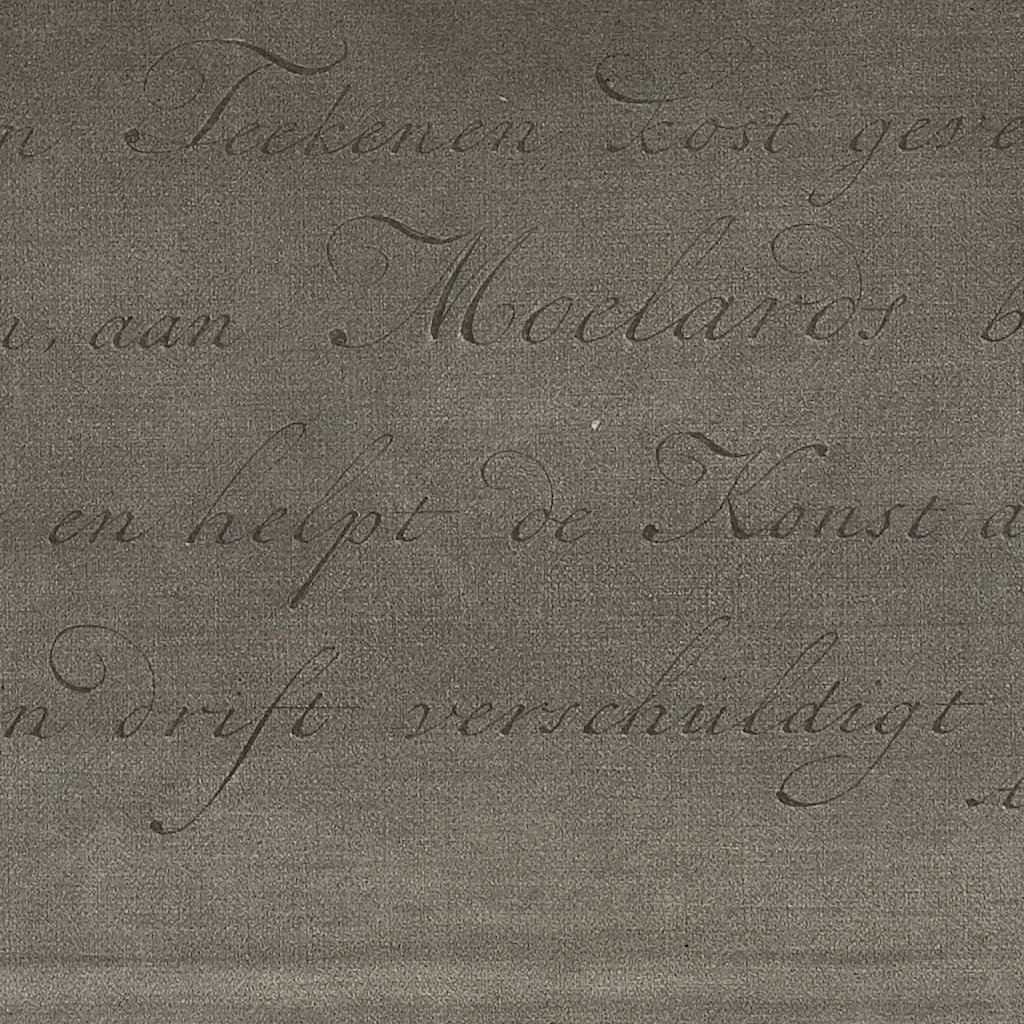 n Teekenen kost geve
n, aan Moelards b
en helpt de Konst a
n drift verschuldigt
A